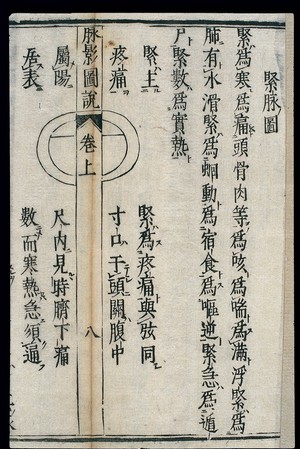 緊脉圖
緊為寒為痛頭骨肉等為咳為喘為滿浮緊為
肺有水滑緊為蚘動為宿食為嘔逆緊急為遁
尸緊數為實熱
緊主
疼痛
脉影圖說
卷上
八
屬陽
居表
緊為疼痛與弦同
寸口于頭關腹中
尺内見時臍下痛
數而寒熱急須逼